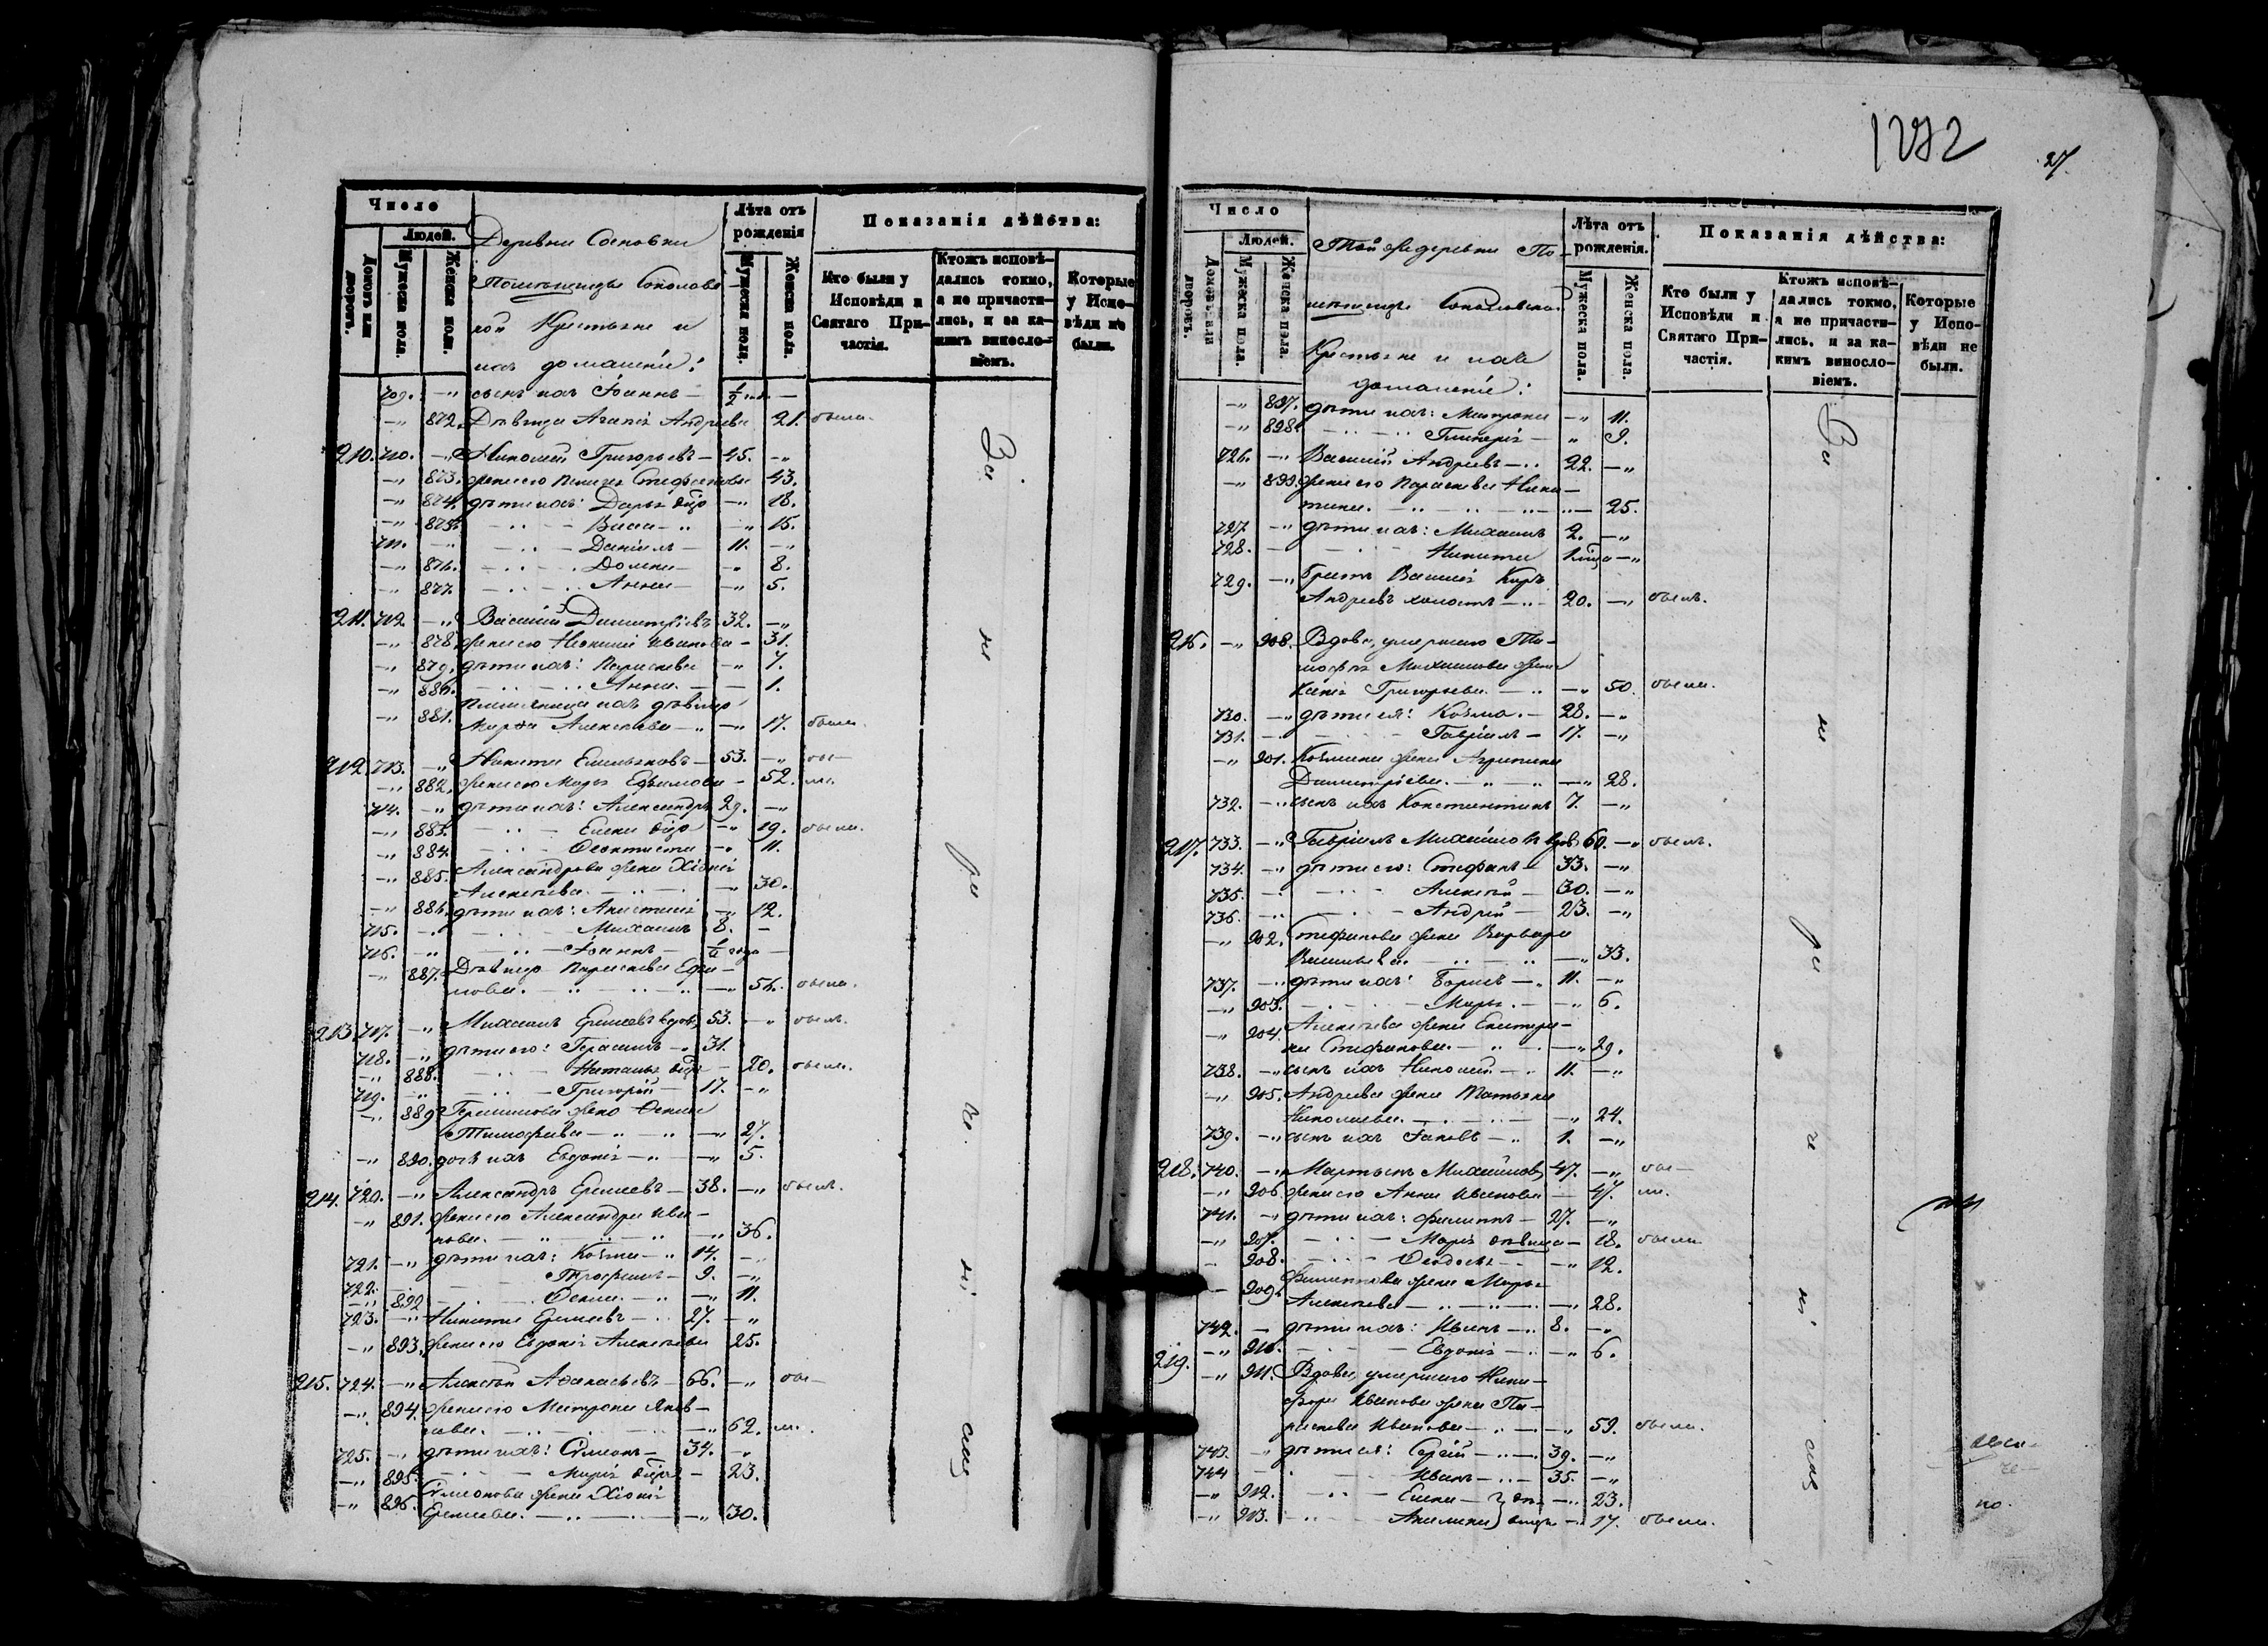 Число
Людей.
Домовъ или дворовъ.
Мужеска пола.
Женска пола.
Деревни Сосновки
Помѣщицы Соколовс-
кой Крестьяне и
ихъ домашніи:
Лѣта отъ рожденія
Мужеска пола.
Женска пола.
Показанія дѣйства:
Кто были у Исповѣди и Святаго Причастія.
Ктожъ исповѣдались токмо, а не причастились, и за какимъ винословіемъ.
Которые у Исповѣди не были.
709. —„ сынъ ихъ Іоаннъ — ½ —
—„ 872. Дѣвица Агапія Андреева 21. была.
210. 710. —„ Николай Григорьевъ — 45. —„
—„ 873. жена его Пелагея Стефанова 43.
—„ 874. дѣти ихъ: Дарья дѣв. —„ 18.
—„ 875. Васса — „ 15.
711. —„ Даніилъ — 11. —„
—„ 876. Домна — —„ 8.
—„ 877. Анна — —„ 5.
211. 712. —„ Василій Димитріевъ 32. —„
—„ 878. жена его Иванова — 31.
—„ 879. дѣти ихъ: Параскева —„ 7.
—„ 880. Анна. — — 1.
Племянница ихъ дѣвица
—„ 881. Марфа Алексѣева —„ —„ 17. была.
212. 713. —„ Никита Емельяновъ — 53. —„ бы-
—„ 882. жена его Марья Ефимова — 52. ли.
714. —„ дѣти ихъ: Александръ 29. —„
—„ 883. Елена дѣв. —„ 19. была.
—„ 884. Феоктиста —„ 11.
—„ 885. Александрова жена Хіонія
Алексѣева. —„ 30.
—„ 886. дѣти ихъ: Анастасія —„ 12.
715. —„ Михаилъ 8. —
716. —„ Іоаннъ — ½ года —
—„ 887. Дѣвица Параскева Ефи-
мова. —„ 56. была.
213. 717. —„ Михаилъ Еремѣевъ вдов. 53. —„ былъ.
718. —„ дѣти его: Герасимъ — 31.
—„ 888. Наталья дѣв. — 20. была.
719. —„ Григорій — 17. —„
—„ 889. Герасимова жена Фекла
Тимофеева — —„ 27.
—„ 890. дочь ихъ Евдокія —„ —„ 5.
214. 720. —„ Александръ Еремеевъ — 38. —„ былъ.
—„ 891. жена его Александра Ива-
нова. —„ 36.
721. —„ дѣти ихъ: Козма —„ 14. —„
722. Трофимъ — 9. —„
—„ 892. Фекла. —„ 11.
723. —„ Никита Еремеевъ — 27. —„
—„ 893. жена его Евдокія Алексѣева 25.
215. 724. —„ Алексѣй Афанасьевъ — 66. —„ бы-
—„ 894. жена его Матрона Яков-
лева. —„ 62. ли.
725. —„ дѣти ихъ: Симеонъ — 34. —„
—„ 895. Марія дѣв. — 23.
—„ 896. Симеонова жена Хіонія
Еремеева. —„ 30.
1272
27.
Число
Людей.
Домовъ или дворовъ.
Мужеска пола.
Женска пола.
Той же деревни По-
мѣщицы Соколовской
Крестьяне и ихъ
домашніи:
Лѣта отъ рожденія.
Мужеска пола.
Женска пола.
Показанія дѣйства:
Кто были у Исповѣди и Святаго Причастія.
Ктожъ исповѣдались токмо, а не причастились, и за какимъ винословіемъ.
Которые у Исповѣди не были.
—„ 897. дѣти ихъ: Матрона —„ 11.
—„ 898. Гликерія — „ 9.
726. —„ Василій Андреевъ — 22. —„
—„ 899. жена его Параскева Ники-
тина. — 25.
727. —„ дѣти ихъ: Михаилъ 2. —„
728. — Никита 1 мѣс. —„
729. —„ Братъ Василія Киръ
Андреевъ холостъ — 20. —„ былъ.
216. —„ 900. Вдова, умершаго Ти-
мофея Михаилова жена
Ксенія Григорьева. —„ 50. была.
730. —„ дѣти ея: Козма. — 28. —„
731. — Гавріилъ — 17. —„
—„ 901. Козмина жена Агрипина
Димитріева. —„ 28.
732. —„ сынъ ихъ Константинъ 7. —„
217. 733. —„ Гавріилъ Михаиловъ вдов. 60. —„ былъ.
734. —„ дѣти его: Стефанъ — 33. —„
735. Алексѣй — 30. —„
736. Андрей — 23. —„
—„ 902. Стефанова жена Варвара
Васильева. —„ 33.
737. —„ дѣти ихъ: Борисъ — 11. —„
—„ 903. Марья. — —„ 6.
—„ 904. Алексѣева жена Екатери-
на Стефанова. —„ 29.
738. —„ сынъ ихъ Николай — 11. —„
—„ 905. Андреева жена Татьяна
Николаева. —„ 24.
739. —„ сынъ ихъ Іаковъ —„ 1. —„
218. 740. —„ Мартынъ Михаиловъ 47. —„ бы-
—„ 906. жена его Анна Иванова — 47. ли.
741. —„ дѣти ихъ: Филиппъ — 27. —„
—„ 907. Марія дѣвица — 18. была
— 908. Феодосья — —„ 12.
— 909. Филиппова жена Марья
Алексѣева —„ 28.
742. — дѣти ихъ: Иванъ — 8. —„
—„ 910. Евдокія — —„ 6.
219. —„ 911. Вдова, умершаго Ники-
фора Иванова жена Па-
раскева Иванова —„ 59. была.
743. —„ дѣти ея: Сергій — 39. —„
744 Иванъ — 35. —„
—„ 912. Елена — дѣ- — 23.
—„ 913. Акилина вицы — 17. были.